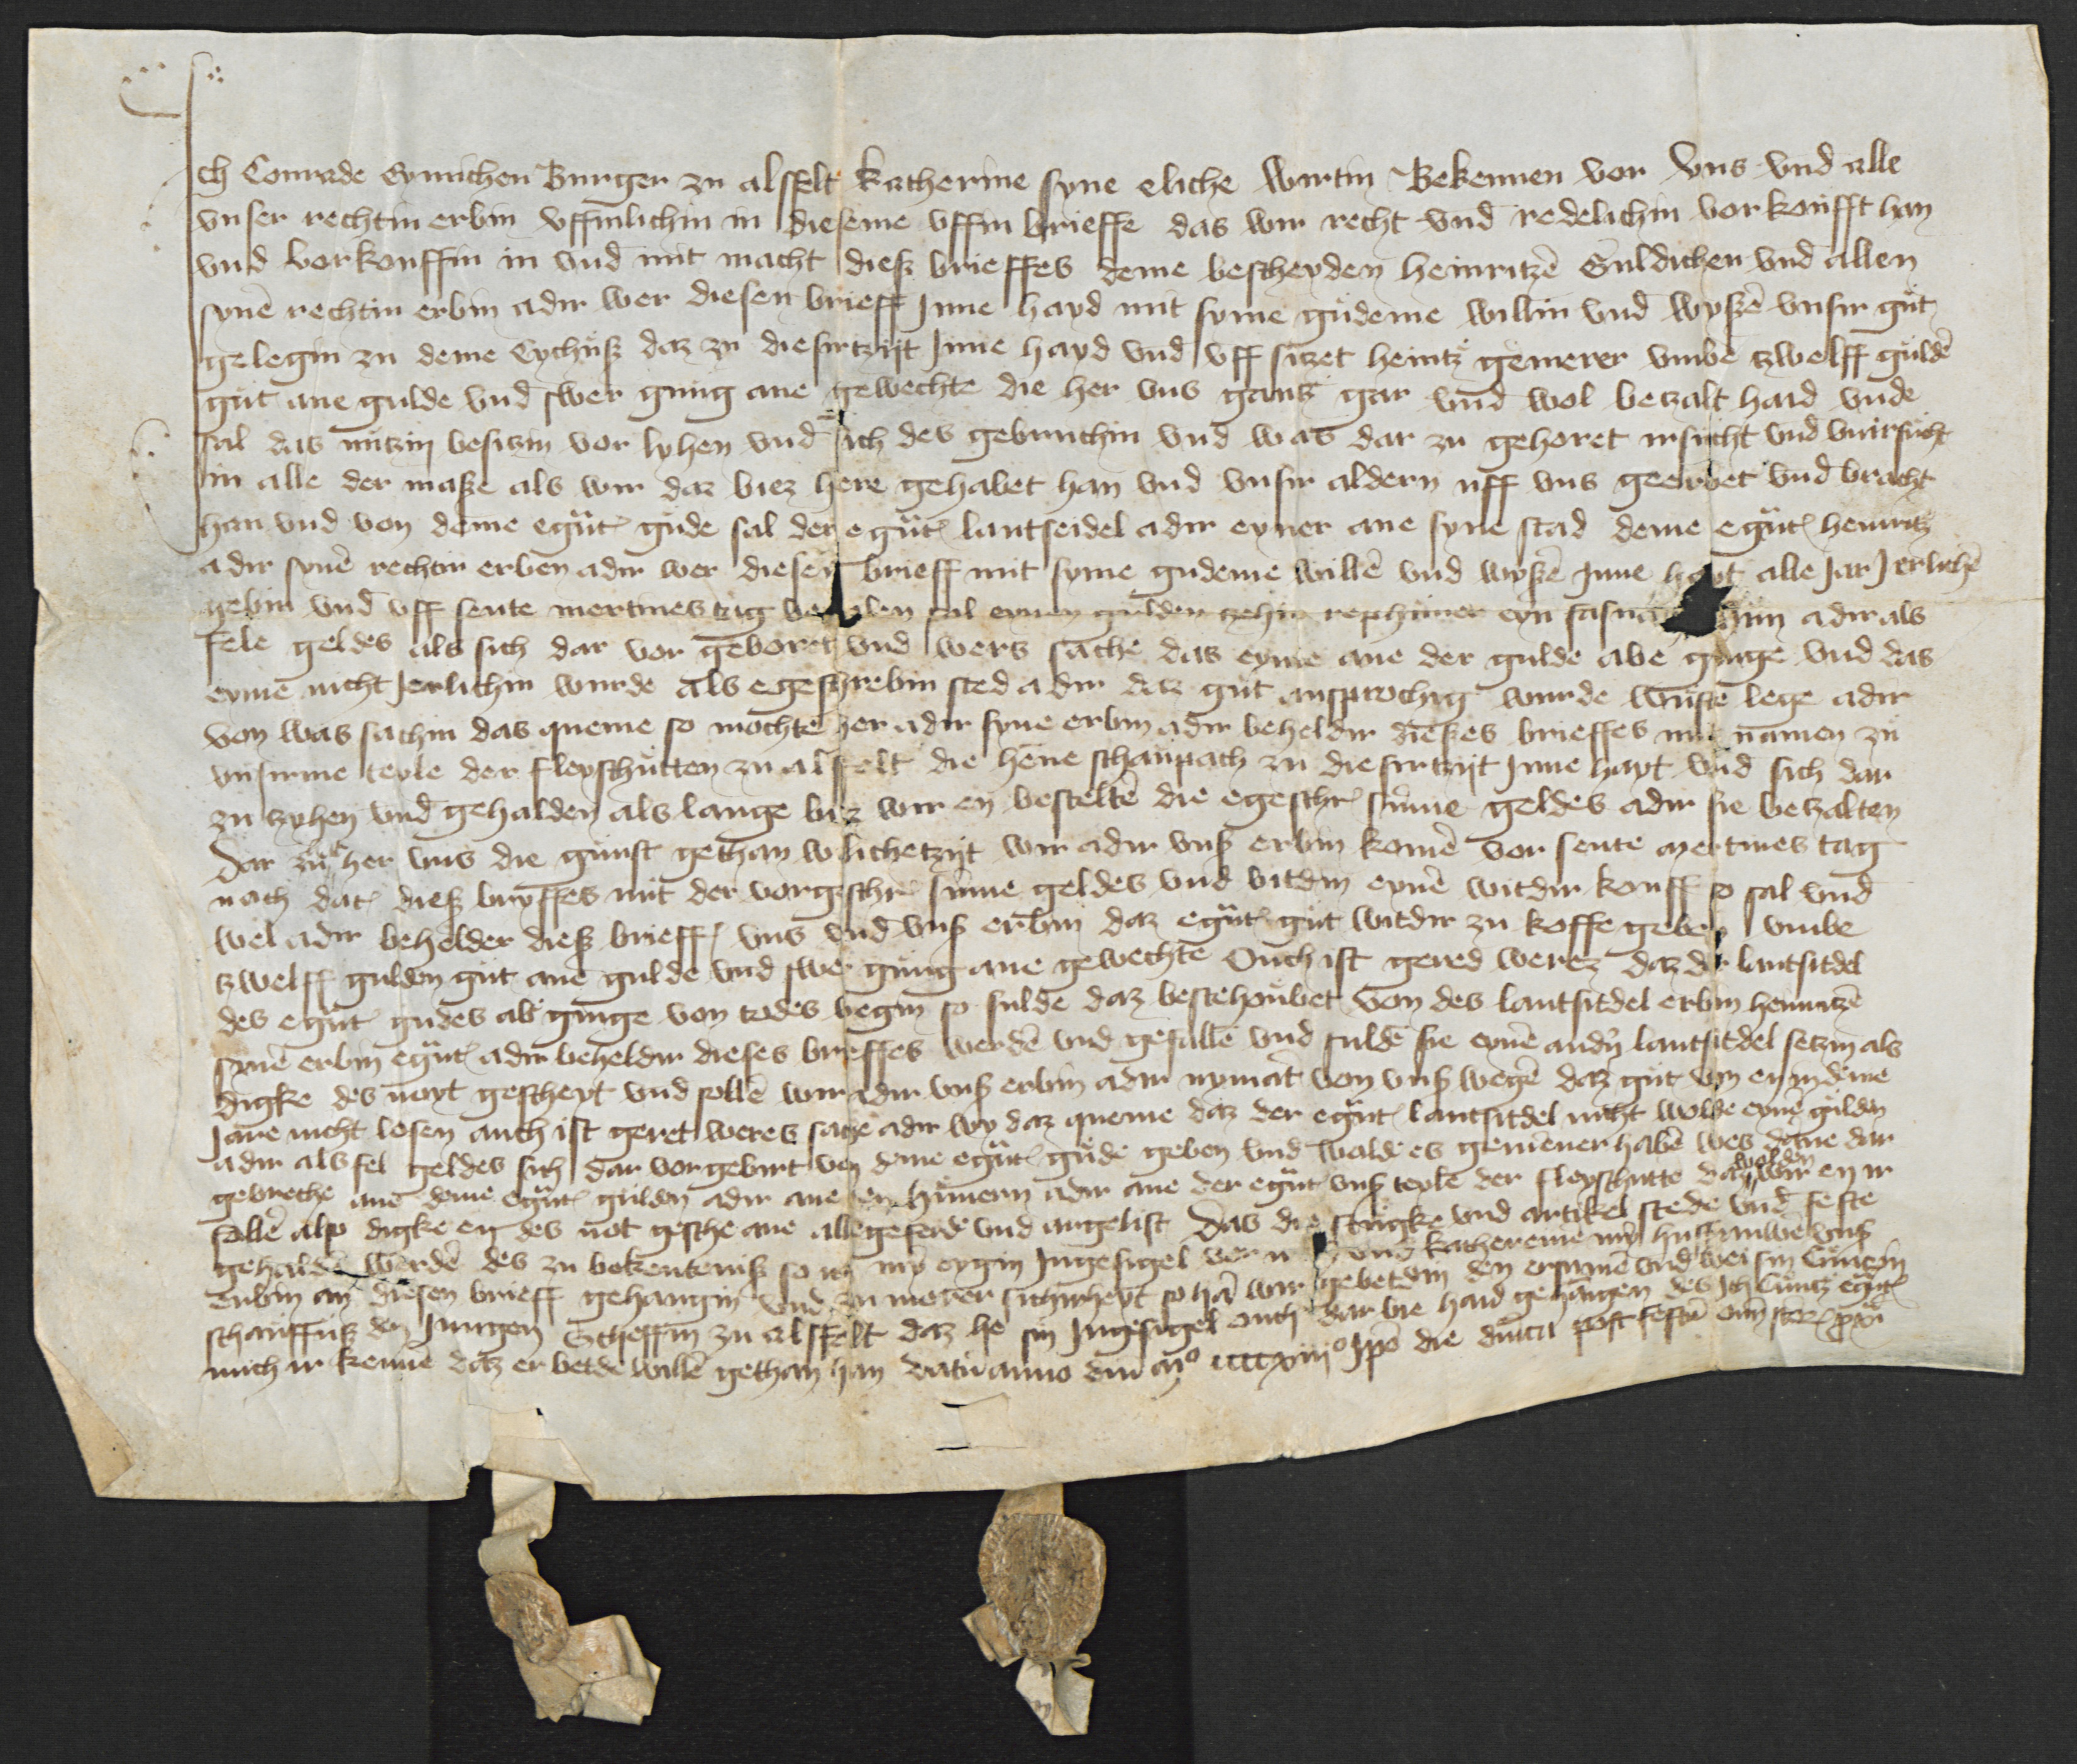 Ich Conrade Eymichen Burger zu alsfelt katherine syne eliche wirtin Bekennen vor vns vnd alle
vnser rechtin erbin vffinlichin in dieseme vffin brieffe das wir recht vnd redelichin vorkoufft han
vnd vorkouffin in vnd mit macht dieß brieffes deme bescheyden heinritzē Guldichen vnd allen
synē rechtin erbin adir wer diesen brieff Inne hayd mit syme gudeme willin vnd wyßē vnsir gut
gelegin zu deme Eychuß daz zu diesirtzijt Inne hayd vnd vff sitzet heintz gemerer vmbe tzwelff guldē
gut ane gulde vnd swer gnug ane gewechte die her vns gantz gar vnd wol betzalt haid vnde
sal das nutzin besitzin vor lyhen vnd sich des gebruchin vnd was dar zu gehoret irsucht vnd vnirsucht
in alle der maße als wir daz biez here gehabet han vnd vnsir aldern uff vns geerbet vnd bracht
han vnd von deme egut gude sal der egut lantseidel adir eyner ane syne stad deme egut heinritz
adir synē rechtin erben adir wer diesen brieff mit syme gudeme willē vnd wyßē Inne hayt alle Jar Jerlichē
gebin vnd vff sente mertines tag sal eynen gulden tzehin rephuner eyn adir als
fele geldes als sich dar vor geboret vnd wers sache das eyme ane der gulde abe ginge vnd das
eyme nicht Jerlichin wurde als egeschrebin sted adir daz gut ansprochig wurde wuste lege adir
von was sachin das queme so mochte her adir syne erbin adir beheldir dießes brieffes mit namen zu
vnsirme teyle der fleyschutten zu alsfelt die hene schaupach zu diesirtzijt Inne hayt vnd sich dar
zu tzyhen vnd gehalden als lange biz wir en bestelte die egeschr sume geldes adir sie betzalten
Dar zu her vns die gunst gethan wilichetzijt wir adir vnß erbin komē vor sente mertines tag
nach dat dieß bryffes mit der vorgeschr sume geldes vnd bitdin eynē witdir kouff so sal vnd
wel adir behelder dieß brieff vns vnd vnß erbin daz egut gut witdir zu koffe geben vmbe
tzwelff gulden gut ane gulde vnd swer gnug ane gewechte Ouch ist gered werez daz der lantsitdel
des egut gudes abe ginge von todes wegin so sulde daz bestehoubet von des lantsitdel erbin heinritzē
synē erbin egut adir beheldir dieses brieffes werdē vnd gefallē vnd sulde sie eynē andn lantsitdel setzin als
digke des noyt gescheyt vnd sollē wir adir vnß erbin adir nymāt von vnß wegē daz gut vm eyndeme
Jare nicht losen auch ist geret weres sache adir wy daz queme daz der egut lantsitdel nicht wolde eynē guldn
adir als fel geldes sich dar vor geburt von deme egut gude geben vnd walde es haben wes deme dar
gebreche ane deme egut guldn adir ane hunern adir ane der egut vnß teyle der fleyschutte da wolden wir en ir
follē also digke en des not geschē ane allegeferde vnd argelist Das die stugke vnd artikel stede vnd feste
gehaldē werdē des zu bekentenisß so ich mȳ eygin Ingesigel vor vnd katherine mȳ hußfrauwē vnß
erbin an diesen brieff gehangin vnd zu merer sichirheyt so hā wir gebetdin den ersamē vnd wei sin Cuntzin
schauffuß den Jungen Scheffin zu alsfelt daz he sin Ingesigel ouch dar bie haid gehangen des Ich Cuntz egut
mich ir kenne daz er betde willē gethan han datū anno dni mo ccccxiiijo Ipo die dnica post festū